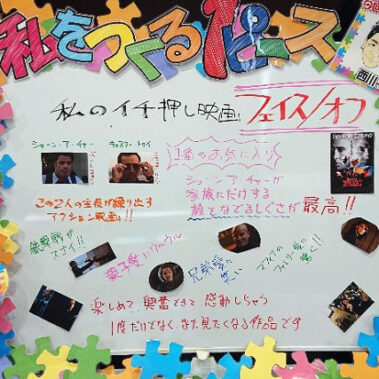 私をつくる1ピース
私のイチ押し映画
フェイス/オフ
ショーン・アーチャー
キャスター・トロイ
1番のお気に入り
ショーン・アーチャーが
家族にだけする
顔をなでるしぐさが
最高!!
この2人の主役が繰り出す
アクション映画!!
銃撃戦が
スゴイ!!
親子愛にウルウル
兄弟愛に
マフィアの
ファミリー愛に
楽しめて 興奮できて 感動しちゃう
1度だけでなく、また見たくなる作品です